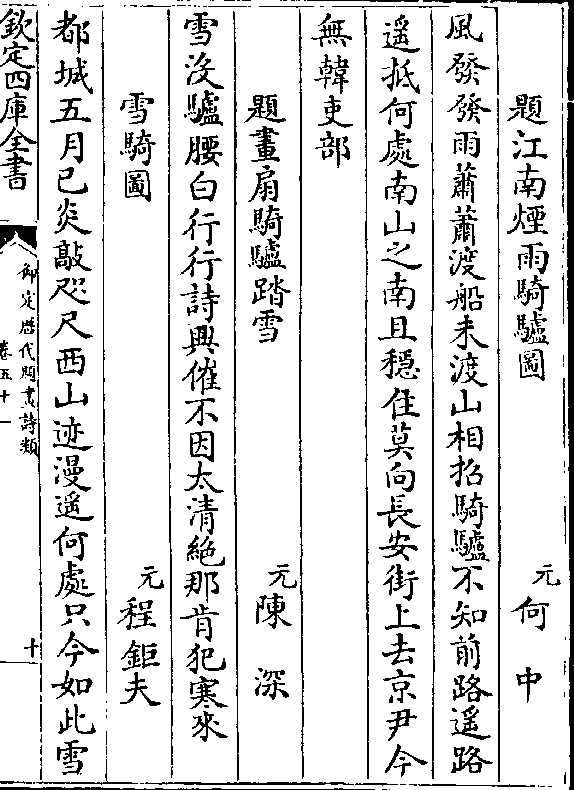 題江南煙雨騎驢圖　元何中
風發發雨蕭蕭渡船未渡山相招騎驢不知前路遥路
遥抵何處南山之南且穩住莫向長安街上去京尹今
無韓吏部
題畫扇騎驢踏雪　元陳深
雪没驢腰白行行詩興催不因太清絶那肯犯寒來
雪騎圖　元程鉅夫
都城五月已炎敲咫尺西山迹漫遥何處只今如此雪
欽定四庫全書
御定歴代題畫詩類
卷五十一
十